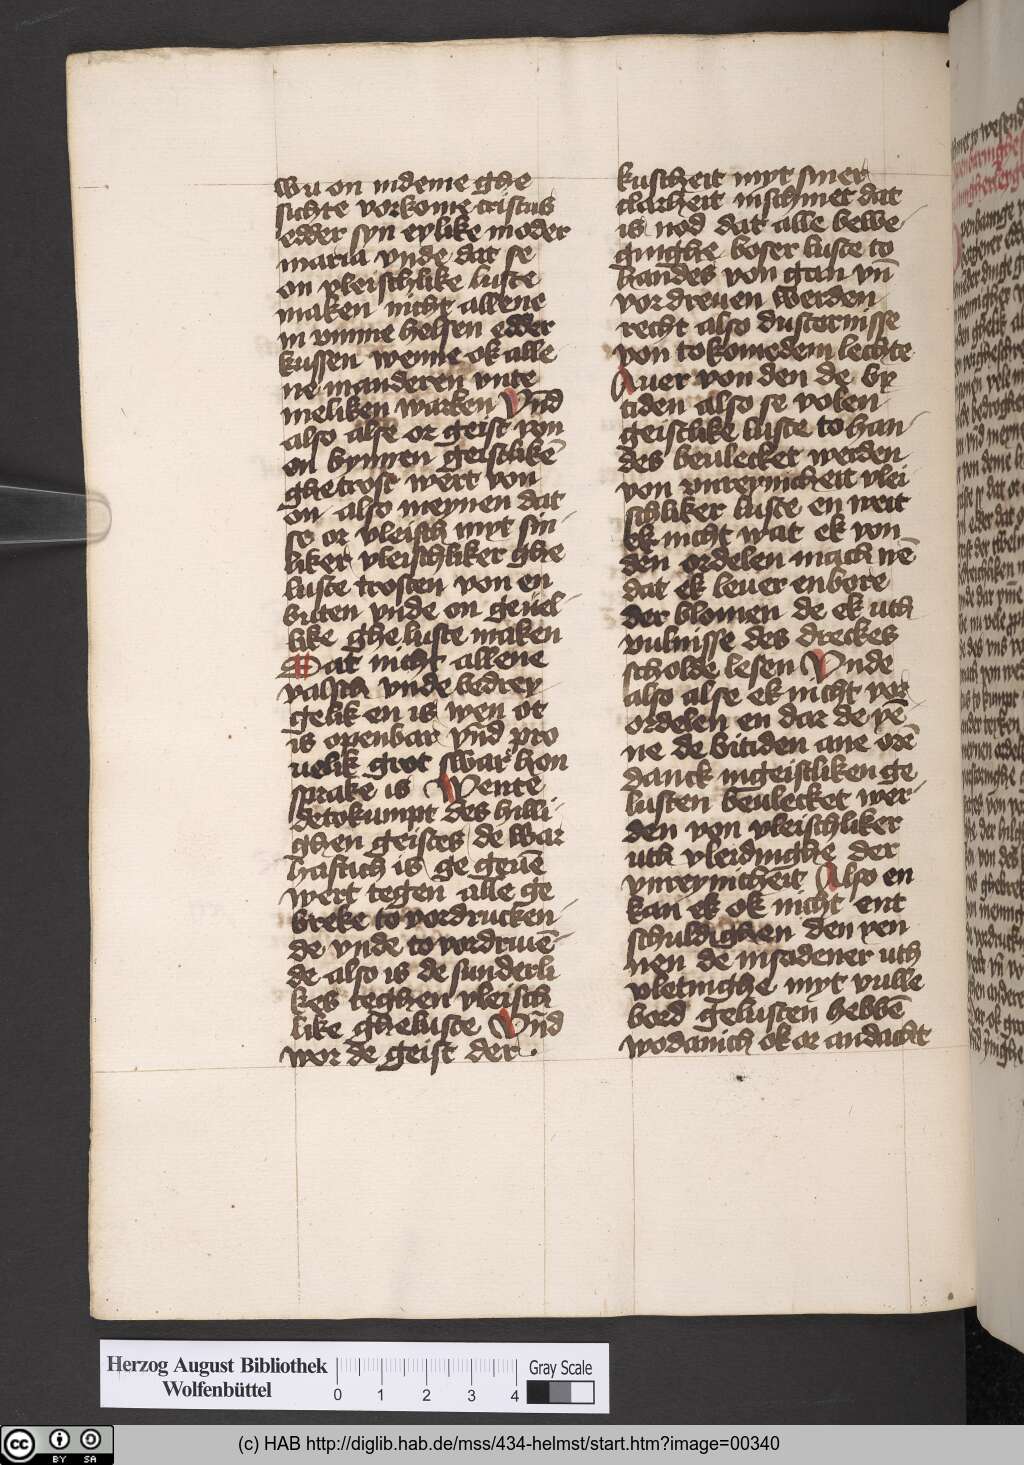 wu on indeme ghe
sichte vorkome cristus
edder syn eylike moder
maria vnde dat se
on vleischlike luste
maken nicht allene
in vmme helsen edder
kussen wenne ok alle
ne inanderen vnte
meliken warken Vnd
also alse or geist von
on bynnen geistlikē
ghetrost wert von
on also meynen dat
se or vleisch myt sin
liker vleischliker ghe
luste trosten von en
buten vnde on geuel
like ghe luste maken
Dat nicht allene
valsch vnde bedrey
gelik en is wen ot
is openbar vnd pro
uelik grot swar hon
sprake is Wente
detokumpt des hilli
ghen geistes de war
hastich is ge geuē
wert tegen alle ge
breke to vordrucken
de vnde to vordriuē
de also is de sunderli
kes teghen vleisch
like gheluste Vnd
wor de geist der
kuscheit myt siner
clarheit inschinet dat
is nod dat alle bewe
ginghe boser luste to
handes von stan vn̄
vordreuen werden
recht also dusternisse
von tokomedem lechte
Auer von den de by
tiden also se volen
geistlike luste to han
des beulecket werden
von vnreynicheit vlei
schliker luste en weit
ek nicht wat ek von
den ordelen mach nē
dat ek leuer enbore
der blomen de ek uth
vulnisse des dreckes
scholde lesen Vnde
also alse ek nicht vor
ordelen en dar de yē
ne de bitiden ane orē
danck ingeistliken ge
lusten beulecket wer
den von vleischliker
uth vleidinghe der
vnreynicheit Also en
kan ek ok nicht ent
schuldighen den yen
nen de insodener uth
vletinghe myt vulle
bord gelusten hebbē
wodanich ok or andacht
Herzog August Bibliothek
Wolfenbüttel
0 1 2 3 4
Gray Scale
cc BY SA
(c) HAB http://diglib.hab.de/mss/434-helmst/start.htm?image=00340